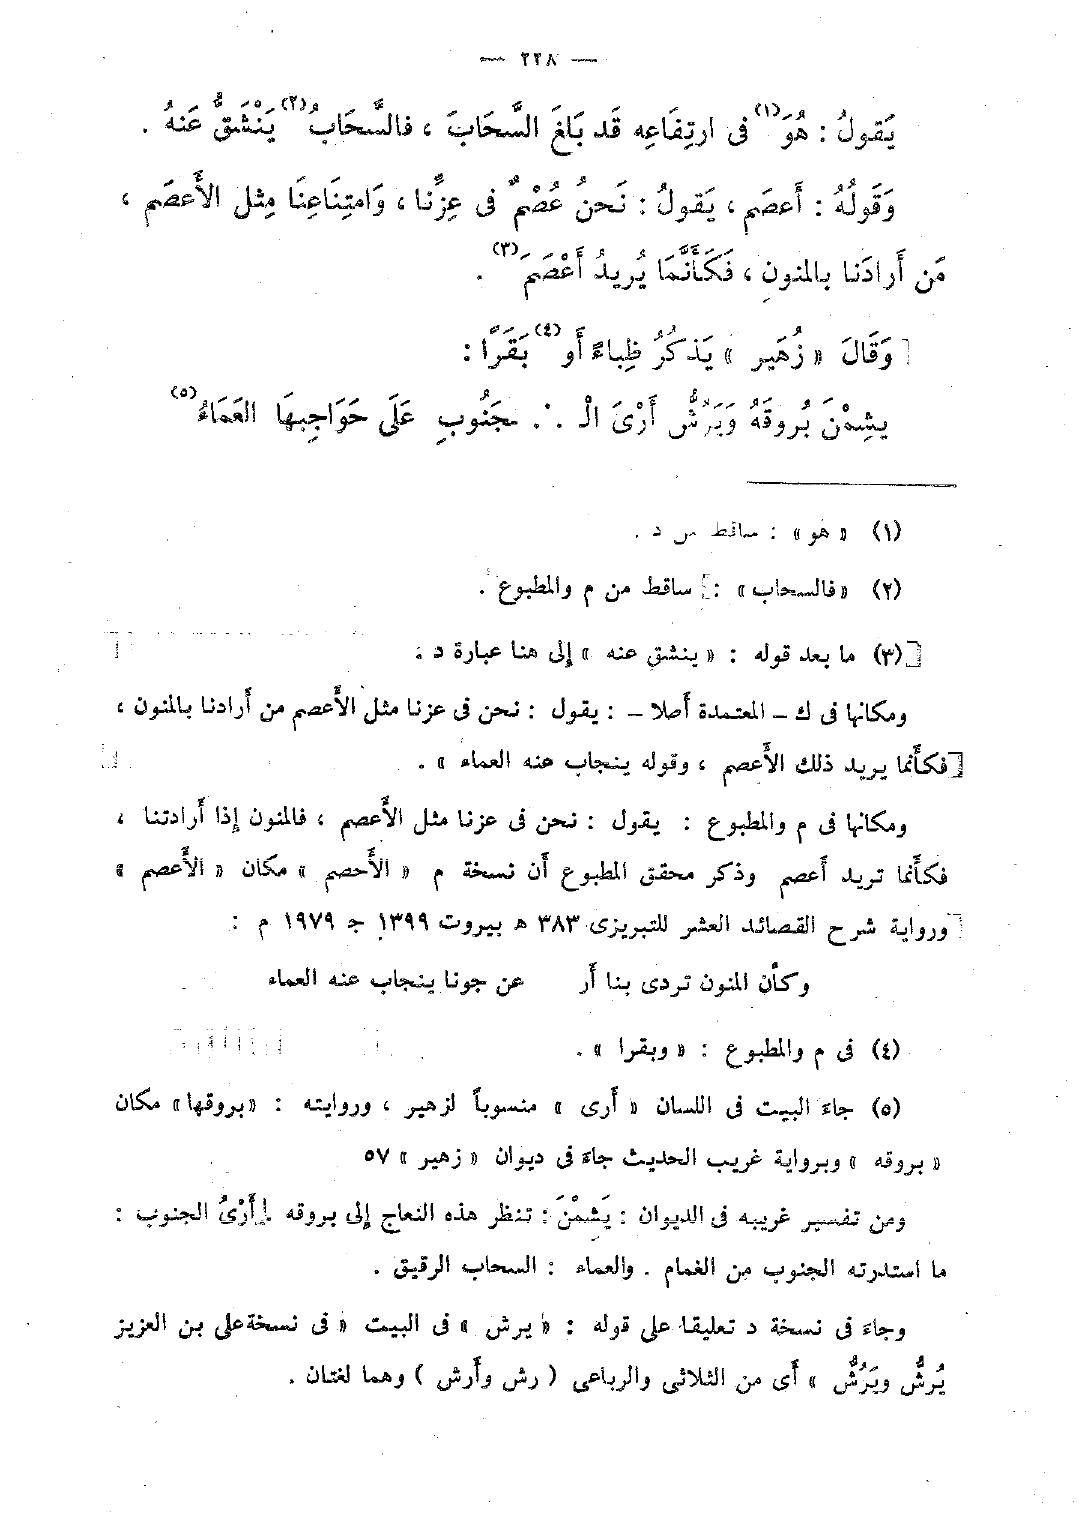 — ٢٢٨ —
يَقولُ : هُوَ(١) فى ارتِفَاعِه قَد بَلغَ السَّحَابَ ، فالسَّحَابُ(٢) يَنْشَقُّ عَنهُ .
وَقَولُهُ : أَعصَم ، يَقولُ : نَحنُ عُصْمٌ فى عِزِّنا ، وَامتِنَاعِنَا مِثل الأَعصَم ،
مَن أَرادَنا بالمنونِ ، فَكَأَنَّمَا يُريدُ أَعْصَمَ(٣) .
[ وَقَالَ « زُهَير » يَذكُرُ ظِباءً أَو(٤) بَقَرًا :
يشِمْنَ بُروقَهُ وَيَرُشُّ أَرْىَ الْـ ∴ ـجَنُوبِ عَلَى حَوَاجِبهَا العَمَاءُ(٥)
(١) « هو » : ساقط من د .
(٢) « فالسحاب » : ساقط من م والمطبوع .
(٣) ما بعد قوله : « ينشق عنه » إلى هنا عبارة د :
ومكانها فى ك ــ المعتمدة أصلا ــ : يقول : نحن فى عزنا مثل الأعصم من أرادنا بالمنون ،
فكأنما يريد ذلك الأعصم ، وقوله ينجاب عنه العماء » .
ومكانها فى م والمطبوع : يقول : نحن فى عزنا مثل الأعصم ، فالمنون إذا أرادتنا ،
فكأنما تريد أعصم وذكر محقق المطبوع أن نسخة م « الأحصم » مكان « الأعصم »
ورواية شرح القصائد العشر للتبريزى ٣٨٣ ه بيروت ١٣٩٩ ج ١٩٧٩ م :
وكأن المنون تردى بنا أر عن جونا ينجاب عنه العماء
(٤) فى م والمطبوع : « وبقرا » .
(٥) جاء البيت فى اللسان « أرى » منسوباً لزهير ، وروايته : «بروقها» مكان
« بروقه » وبرواية غريب الحديث جاء فى ديوان « زهير » ٥٧
ومن تفسير غريبه فى الديوان : يَشمْنَ : تنظر هذه النعاج إلى بروقه . أَرْىُ الجنوب :
ما استدرته الجنوب من الغمام . والعماء : السحاب الرقيق .
وجاء فى نسخة د تعليقا على قوله : « يرش » فى البيت « فى نسخة على بن العزيز
يُرشُّ ويَرُشُّ » أى من الثلاثى والرباعى ( رش وأرش ) وهما لغتان .